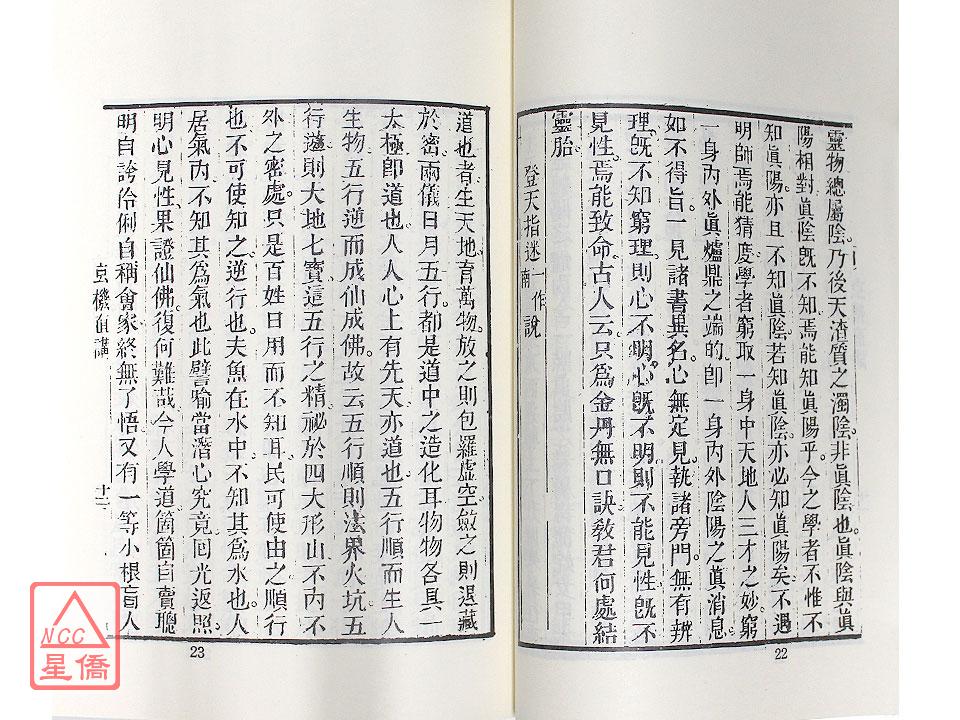 靈物總屬陰。乃後天渣質之濁陰。非眞陰也。眞陰與眞
陽相對。眞陰旣不知。焉能知眞陽乎。今之學者不惟不
知眞陽。亦且不知眞陰。若知眞陰。亦必知眞陽矣。不遇
明師。焉能猜度。學者窮取一身中天地人三才之妙。窮
一身內外眞爐鼎之端的。卽一身內外陰陽之眞消息。
如不得旨。一見諸書異名。心無定見。執諸旁門。無有辨
理。旣不知窮理。則心不明。心旣不明。則不能見性。旣不
見性。焉能致命。古人云。只爲金丹無口訣。敎君何處結
靈胎。
登天指迷一作指南說
22
道也者。生天地。育萬物。放之則包羅虛空。斂之則退藏
於密。兩儀日月五行。都是道中之造化耳。物物各具一
太極。卽道也。人人心上有先天。亦道也。五行順而生人
生物。五行逆而成仙成佛。故云五行順則法界火坑。五
行逆則大地七寶。這五行之精。祕於四大形山。不內不
外之密處。只是百姓日用而不知耳。民可使由之。順行
也。不可使知之。逆行也。夫魚在水中。不知其爲水也。人
居氣內。不知其爲氣也。此譬喻當潛心究竟。囘光返照。
明心見性。果證仙佛。復何難哉。今人學道。箇箇自賣聰
明。自誇伶俐。自稱會家。終無了悟。又有一等小根盲人
玄機直講
十二
23
NCC
星僑